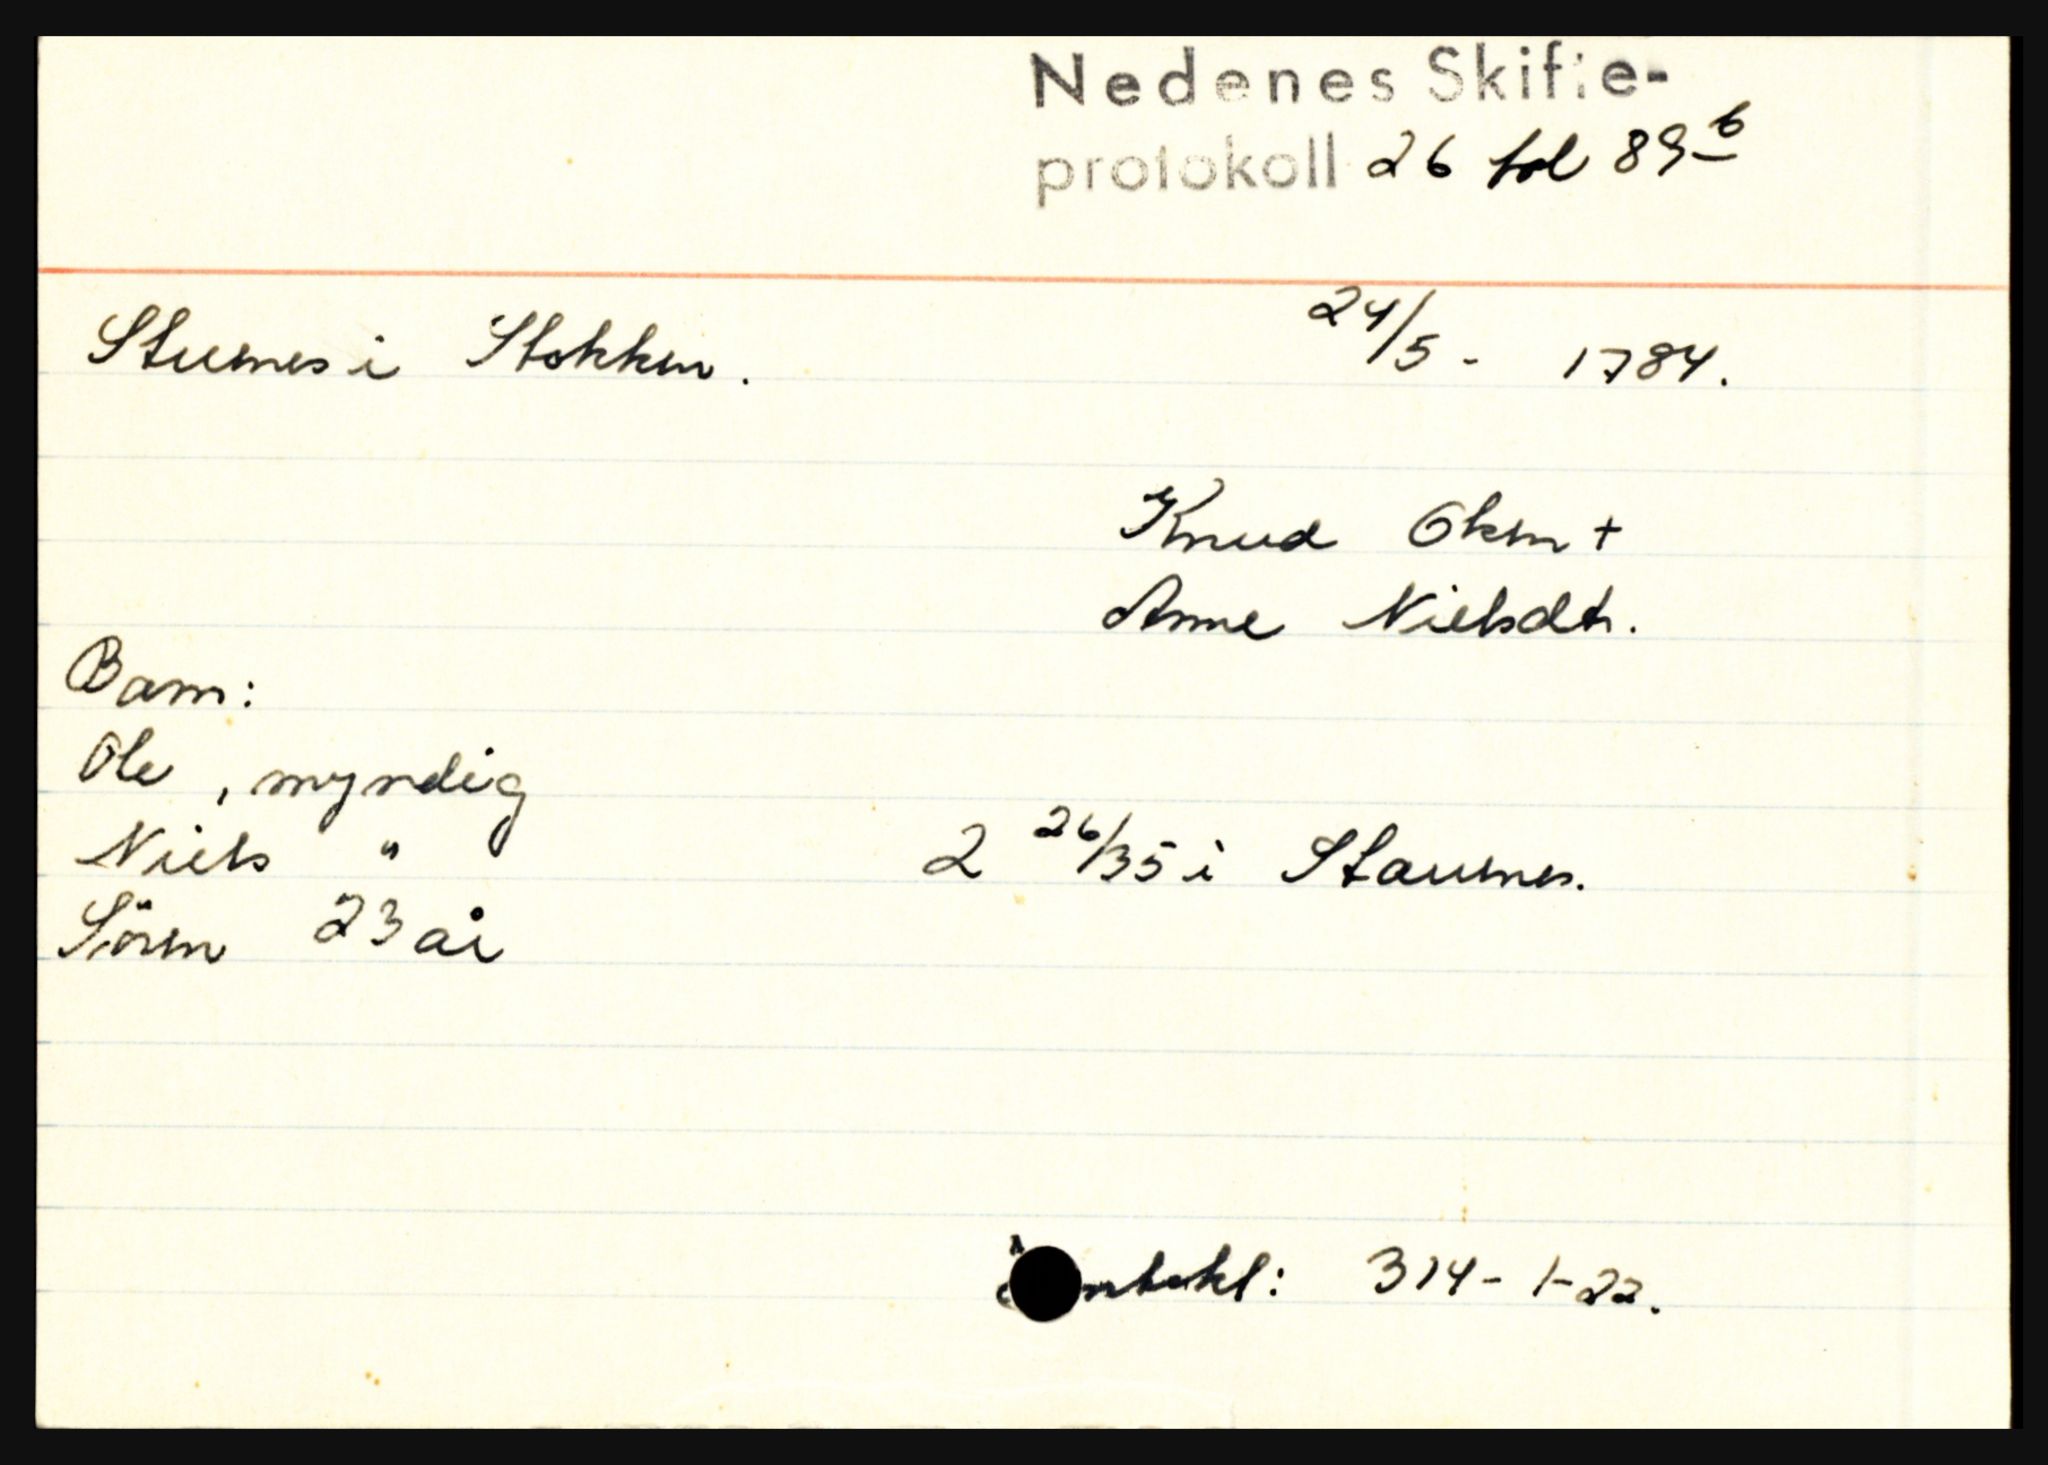 Nedenes Skifte-
protokoll 26 fol 89 b
Stuenes i Stokken.
24/5 - 1784.
Knud Olsen +
Anne Nielsdtr.
Barn:
Ole, myndig
Niels "
Sören 23 år
2 26/35 i Stauenes.
314-1-22.